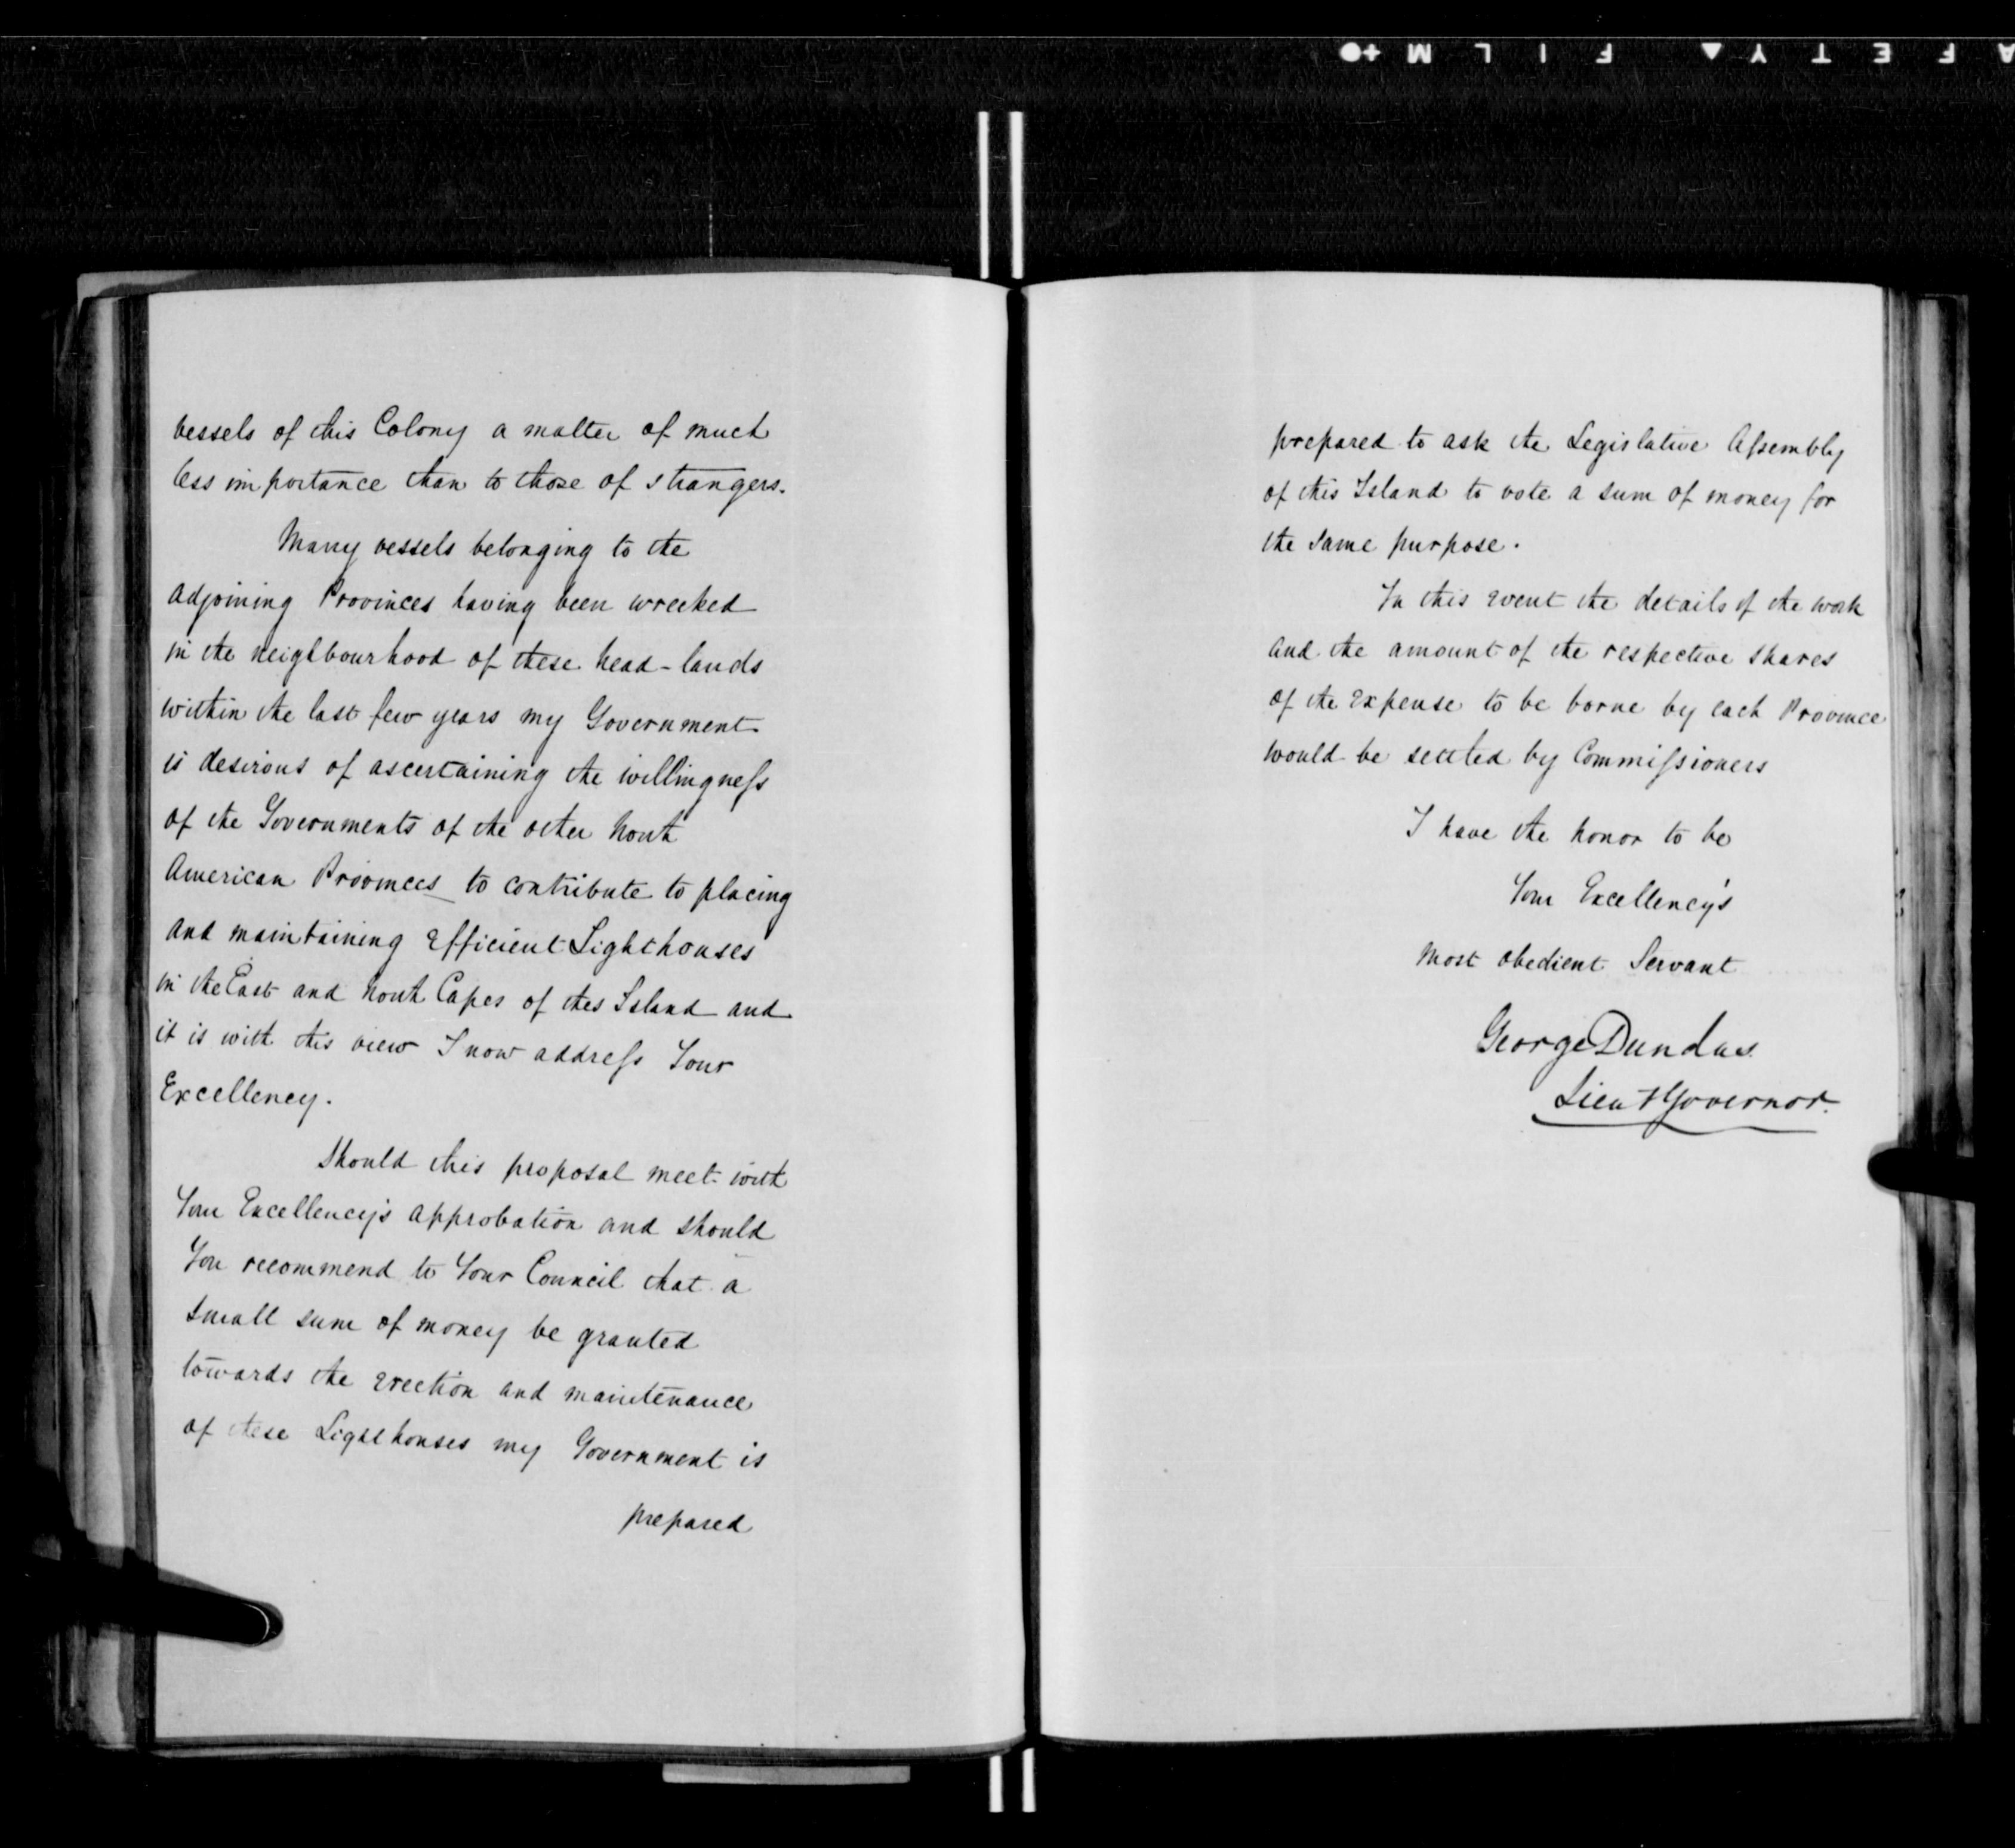 SAFETY ▲ FILM +●
vessels of this Colony a matter of much
less importance than to those of strangers.
Many vessels belonging to the
adjoining Provinces having been wrecked
in the neighbourhood of these head-lands
within the last few years my Government
is desirous of ascertaining the willingness
of the Governments of the other North
American Provinces to contribute to placing
and maintaining efficient Lighthouses
in the East and North Capes of this Island and
it is with this view I now address Your
Excellency.
Should this proposal meet with
Your Excellency's approbation and should
You recommend to Your Council that a
small sum of money be granted
towards the erection and maintenance
of these Lighthouses my Government is
prepared
prepared to ask the Legislative Assembly
of this Island to vote a sum of money for
the same purpose.
In this event the details of the work
and the amount of the respective shares
of the expense to be borne by each Province
would be settled by Commissioners
I have the honor to be
Your Excellency's
most obedient Servant
George Dundas
Lieut Governor.